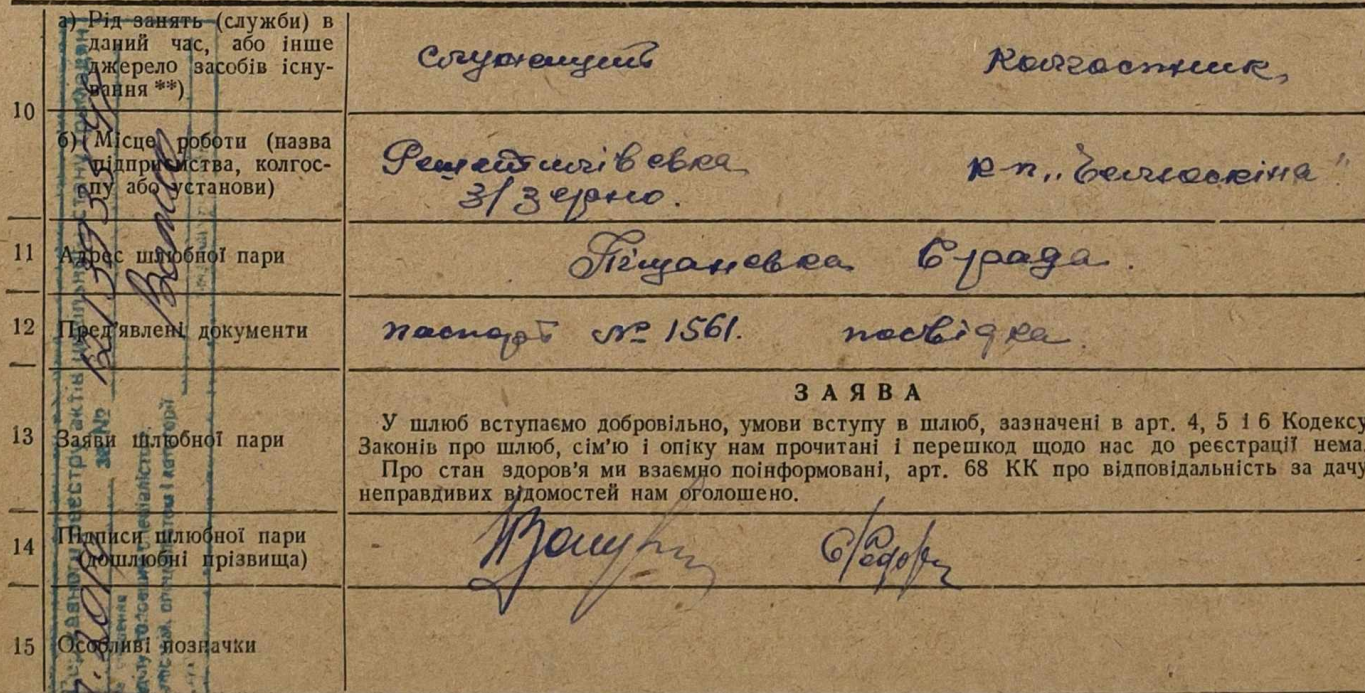 10
а) Рід занять (служби) в
даний час, або інше
джерело засобів існу-
вання **)
служещий
Колгоспник
б) Місце роботи (назва
підприємства, колгос-
пу або установи)
Решетилівська
З/Зерно.
к-п „Челюскіна"
11 Адрес шлюбної пари
Піщановка С/рада.
12 Пред'явлені документи
паспорт № 1561. посвідка.
13 Заяви шлюбної пари
ЗАЯВА
У шлюб вступаємо добровільно, умови вступу в шлюб, зазначені в арт. 4, 5 і 6 Кодексу
Законів про шлюб, сім'ю і опіку нам прочитані і перешкод щодо нас до реєстрації нема.
Про стан здоров'я ми взаємно поінформовані, арт. 68 КК про відповідальність за дачу
неправдивих відомостей нам оголошено.
14 Підписи шлюбної пари
(дошлюбні прізвища)
15 Особливі позначки
за №